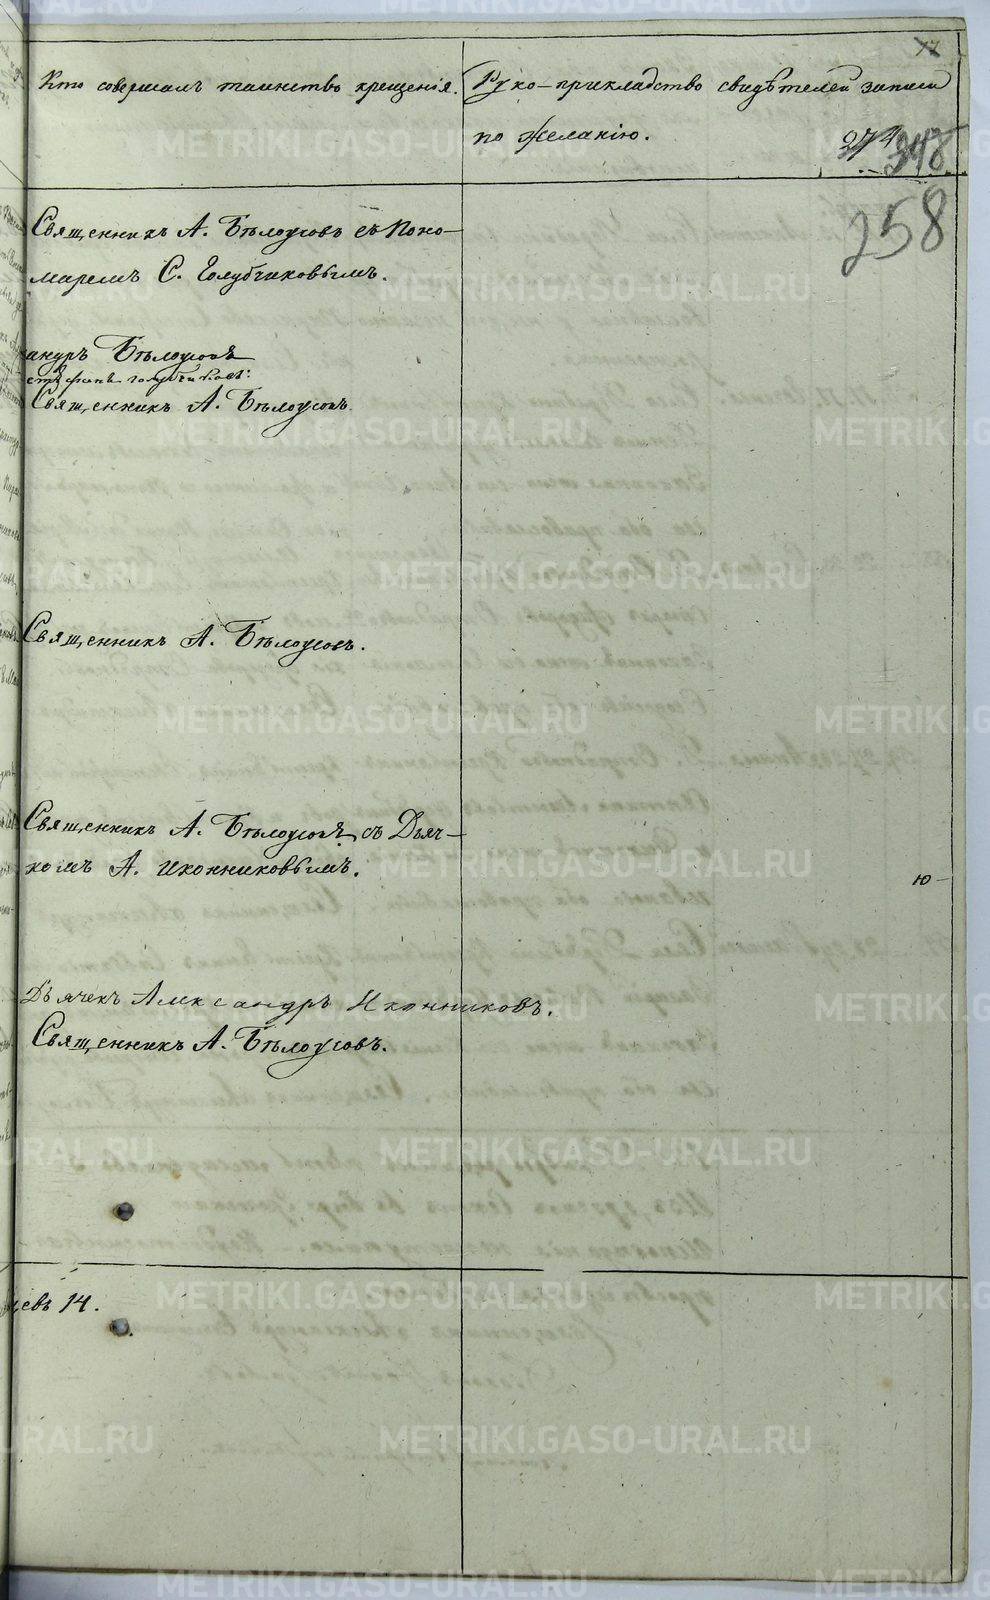 Кто совершалъ таинство крещенія.
Руко-прикладство свидѣтелей записи
по желанію.
274
348
258
Священникъ А. Бѣлоусовъ съ Поно-
маремъ С. Голубчиковымъ.
андръ Бѣлоусовъ
Стефанъ Голубчиковъ:
Священникъ А. Бѣлоусовъ.
Священникъ А. Бѣлоусовъ.
Священникъ А. Бѣлоусовъ съ Дьяч-
комъ А. Иконниковымъ.
ю-
Дьячекъ Александръ Иконниковъ.
Священникъ А. Бѣлоусовъ.
цевъ 14.
METRIKI.GASO-URAL.RU